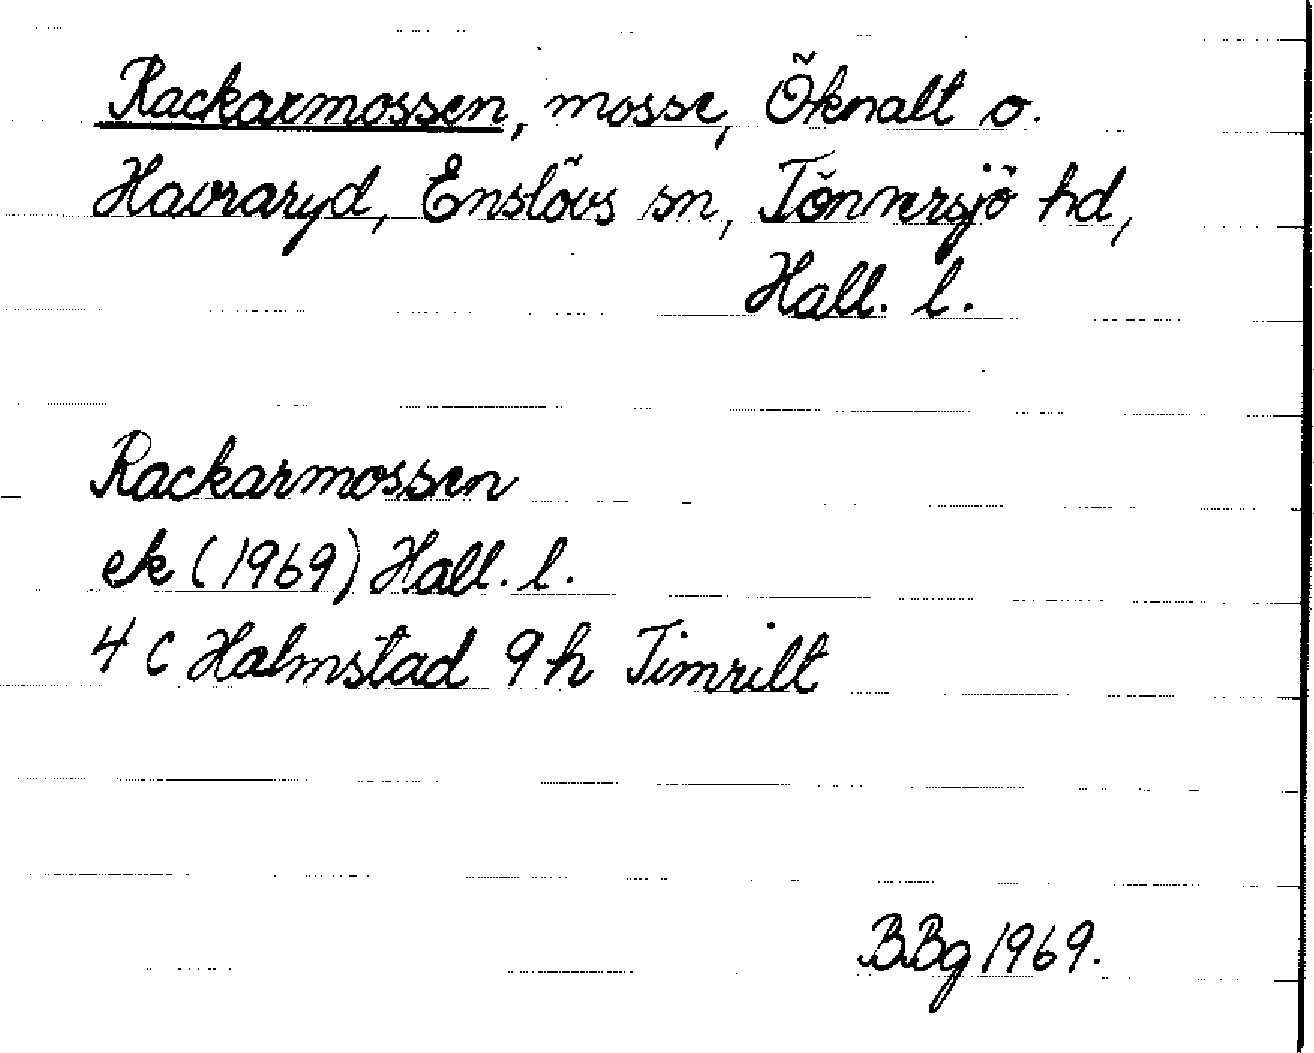 Rackarmossen, mosse, Öknalt o.
Havraryd, Enslövs sn, Tönnersjö hd,
Hall. l.
Rackarmossen
ek (1969) Hall. l.
4 C Halmstad 9 h Timrilt
BBg 1969.